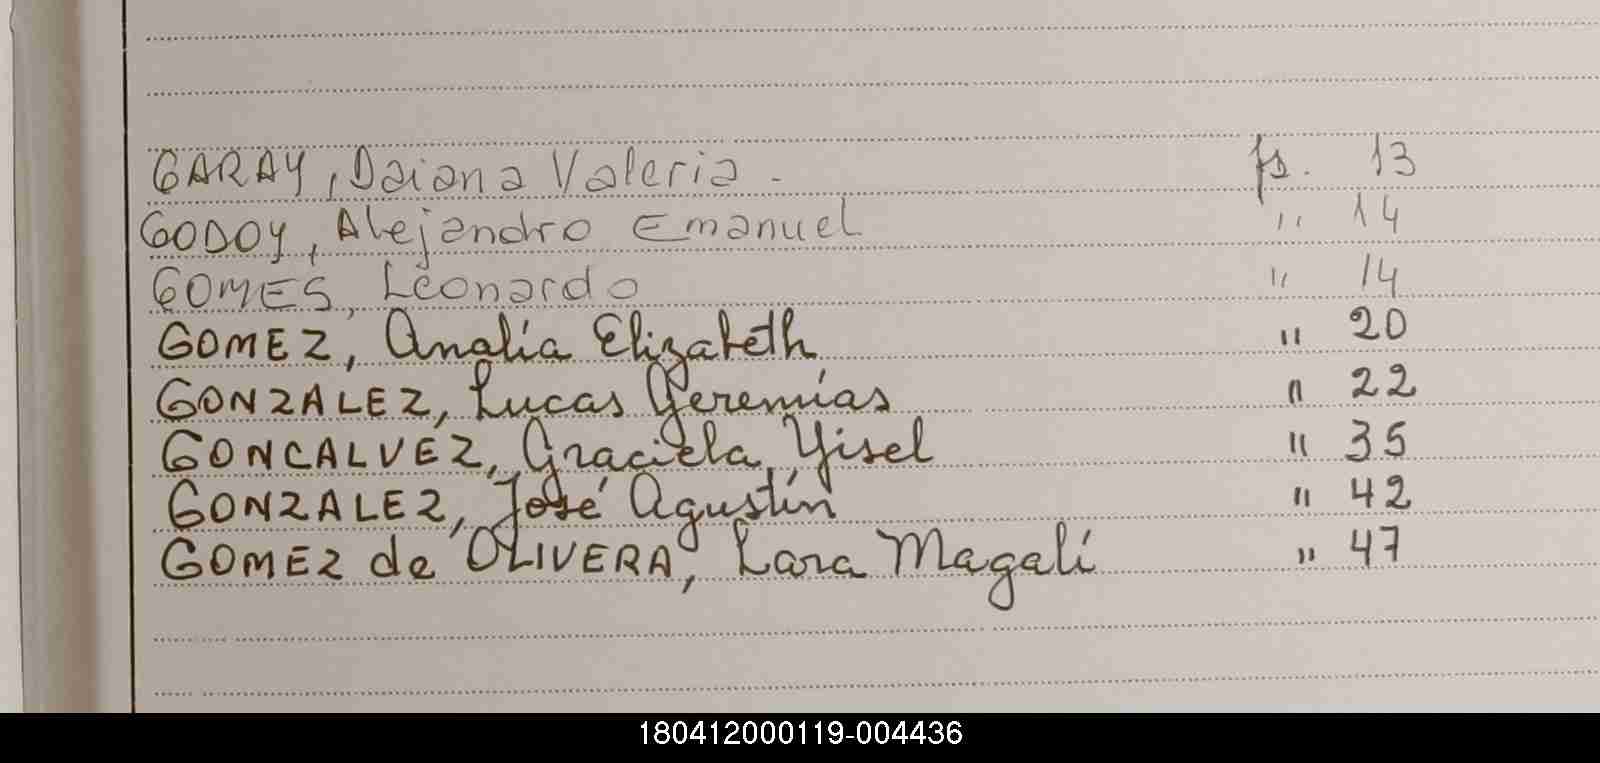 GARAY, Daiana Valeria - fs. 13
GODOY, Alejandro Emanuel " 14
GOMES, Leonardo " 14
GOMEZ, Analía Elizabeth " 20
GONZALEZ, Lucas Yeremías " 22
GONCALVEZ, Graciela Yisel " 35
GONZALEZ, José Agustín " 42
GOMEZ de OLIVERA, Lara Magalí " 47
180412000119-004436